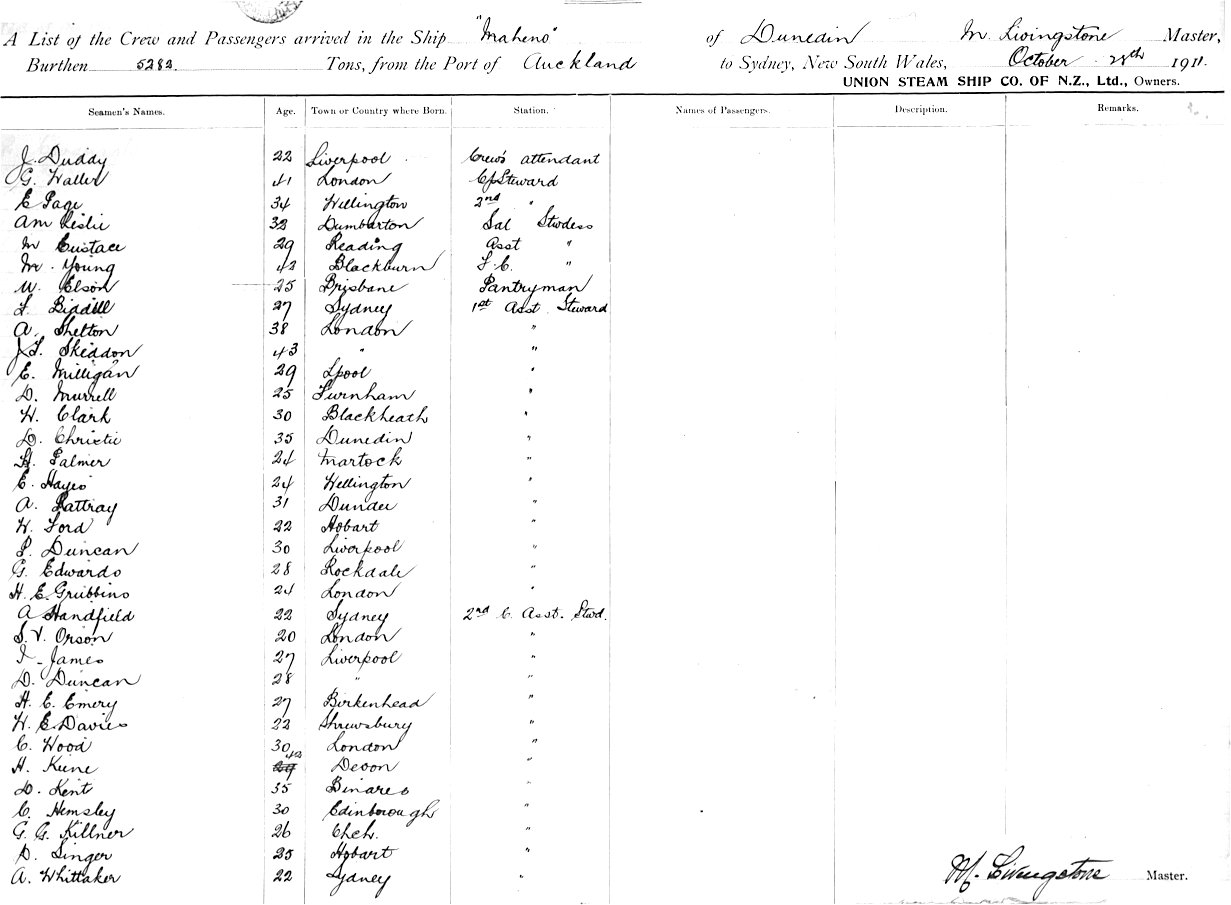 A List of the Crew and Passengers arrived in the Ship "Maheno" of Dunedin M. Livingstone Master,
Burthen 5282 Tons, from the Port of Auckland to Sydney, New South Wales, October 28th 1911.
UNION STEAM SHIP CO. OF N.Z., Ltd., Owners.
Seamen's Names. Age. Town or Country where Born. Station. Names of Passengers. Description. Remarks.
J. Duddy 22 Liverpool Crew's attendant
G. Waller 41 London Cf Steward
E Page 34 Wellington 2nd "
Am Leslie 32 Dumbarton Sal Stwdess
M Eustace 29 Reading Asst "
M. Young 42 Blackburn S.C. "
W. Elson 25 Brisbane Pantryman
L. Biddell 27 Sydney 1st Asst Steward
A. Shelton 38 London "
J.L. Skeddon 43 " "
E. Milligan 29 Lpool "
D. Murrell 25 Furnham "
H. Clark 30 Blackheath "
D. Christie 35 Dunedin "
H. Palmer 24 Martock "
E. Hayes 24 Wellington "
A. Rattray 31 Dundee "
W. Ford 22 Hobart "
P. Duncan 30 Liverpool "
G. Edwards 28 Rockdale "
H. E. Gribbins 24 London "
A Handfield 22 Sydney 2nd C. Asst. Stwd.
S.V. Orson 20 London "
I. James 27 Liverpool "
D. Duncan 28 " "
H. E. Emery 27 Birkenhead "
H. E Davies 22 Shrewsbury "
C. Wood 30 London "
H. Kune 29 42 Devon "
D. Kent 35 Binares "
C. Hemsley 30 Edinborough "
G. G. Killner 26 Chch. "
D. Singer 25 Hobart "
A. Whittaker 22 Sydney "
M. Livingstone Master.